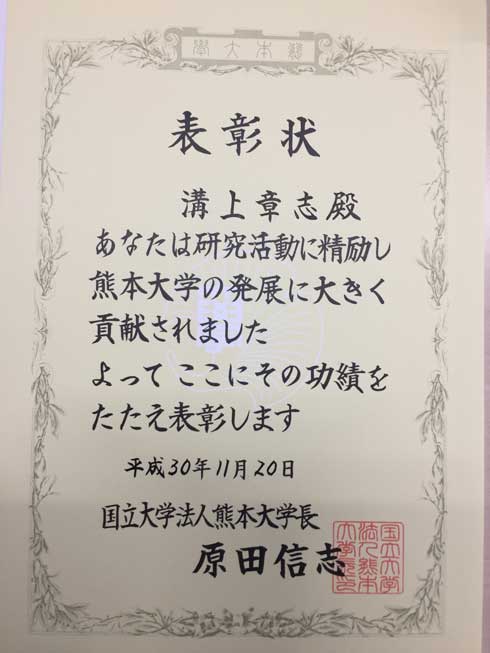 學大本熊
表彰状
溝上章志殿
あなたは研究活動に精励し
熊本大学の発展に大きく
貢献されました
よって ここにその功績を
たたえ表彰します
平成30年11月20日
国立大学法人熊本大学長
原田信志